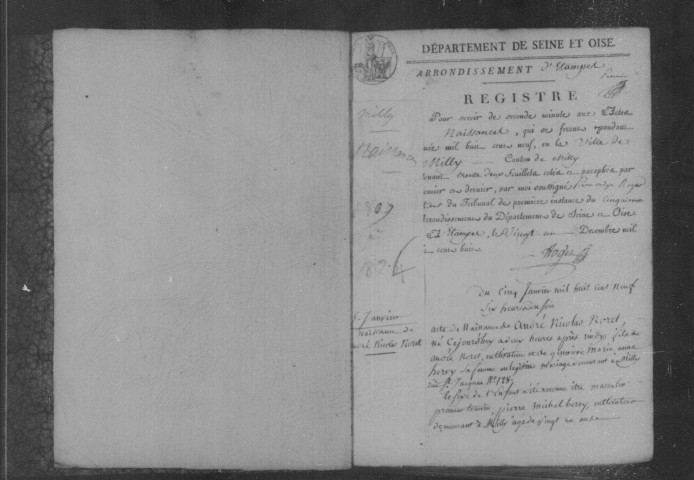 DÉPARTEMENT DE SEINE ET OISE.
ARRONDISSEMENT D'Etampes
REGISTRE
Pour servir de seconde minute aux Actes
de Naissances, qui se feront pendant
mil huit cent neuf, en la Ville de
Milly Canton de Milly
contenant trente deux feuillets cotés et paraphés par
premier et dernier, par moi soussigné
du Tribunal de première instance du Cinquième
arrondissement du Département de Seine et Oise
A Etampes, le Vingt un Décembre mil
huit cent huit
Milly
Naissances
1807
à
5. Janvier
Naissance de
André Nicolas Noret
Du Cinq Janvier mil huit cent Neuf
Six heures du soir
acte de Naissance de André Nicolas Noret,
né Cejourd'huy à deux heures après midy, fils de
Noret, cultivateur et de Marie anne
herry Sa femme en légitime mariage demeurant à Milly
rue St. Jacques No. 128.
le sexe de l'Enfant a été reconnu être masculin
premier témoin, pierre michel herry, cultivateur
demeurant à Milly agé de Vingt